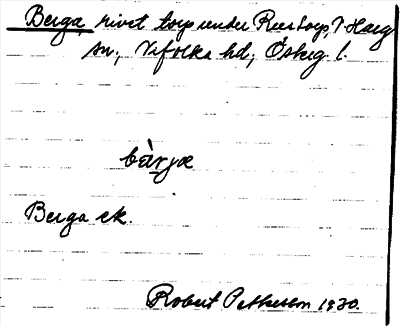 Berga, rivet torp under Reestorp, V. Harg
sn., Vifolka hd, Östeg l.
bär̀jα
Berga ek.
Robert Petterson 1930.